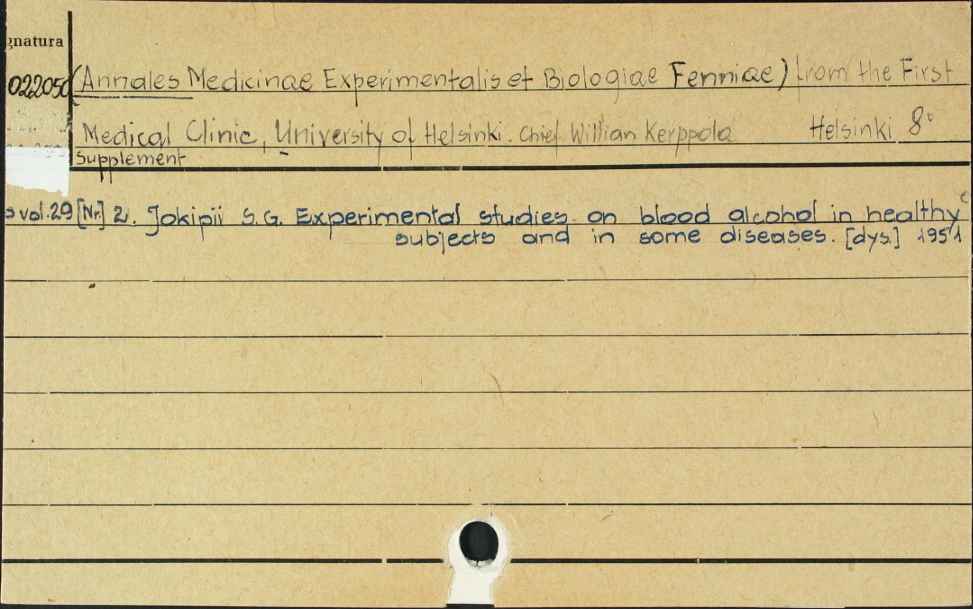 gnatura
022050 (Annales Medicinae Experimentalis et Biologiae Fenniae) from the First
Medical Clinic, University of Helsinki. Chief Willian Kerppola Helsinki 8°
Supplement
vol.29 [Nr] 2. Jokipii S.G. Experimental studies on blood alcohol in healthy
subjects and in some diseases. [dys.] 1951